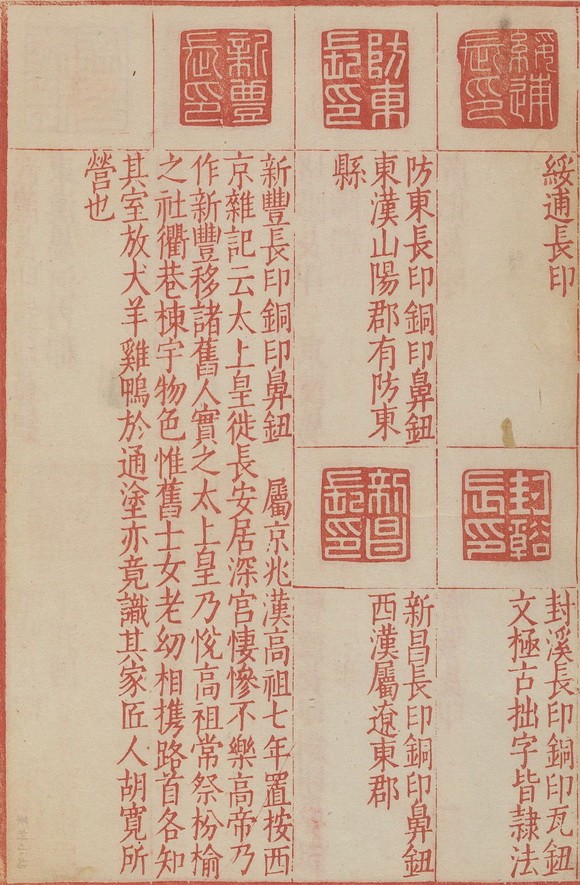 綏逋
長印
綏逋長印
封谿
長印
封溪長印銅印瓦鈕
文極古拙字皆隸法
防東
長印
防東長印銅印鼻鈕
東漢山陽郡有防東
縣
新昌
長印
新昌長印銅印鼻鈕
西漢屬遼東郡
新豐
長印
新豐長印銅印鼻鈕 屬京兆漢高祖七年置按西
京雜記云太上皇徙長安居深宫悽慘不樂高帝乃
作新豐移諸舊人實之太上皇乃悅高祖常祭枌榆
之社衢巷棟宇物色惟舊士女老幼相携路首各知
其室放犬羊雞鴨於通塗亦竟識其家匠人胡寬所
營也